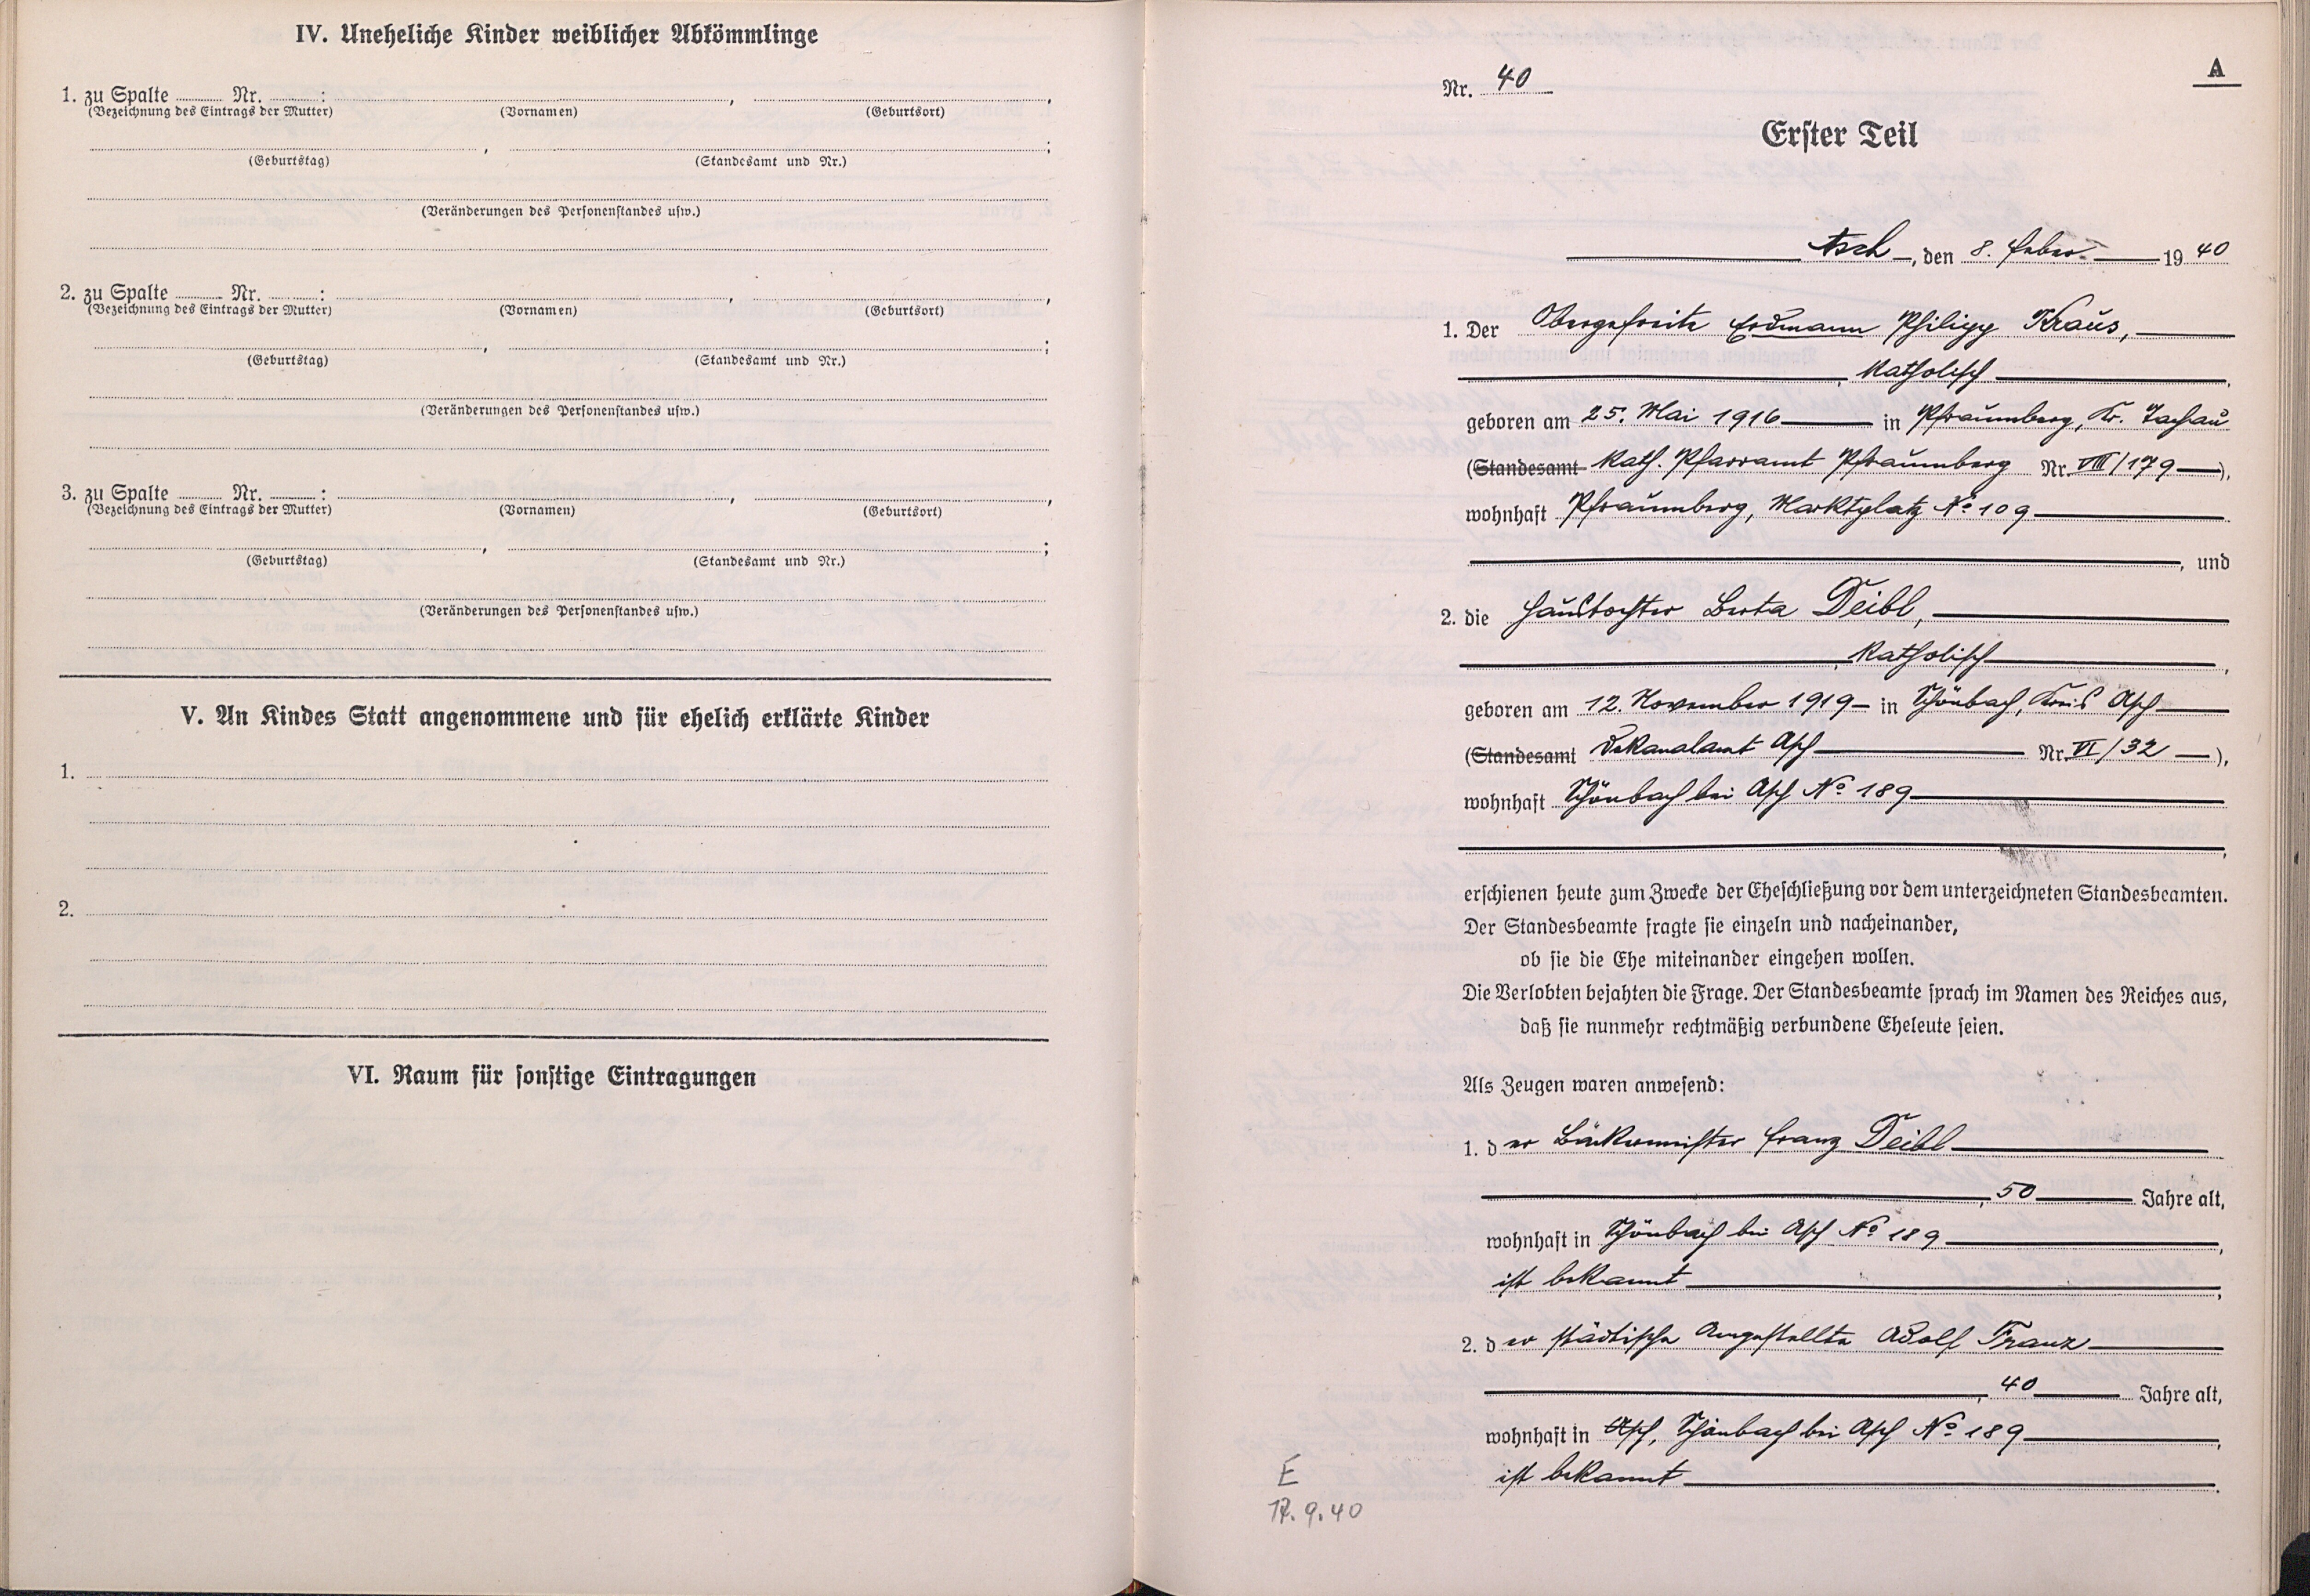 IV. Uneheliche Kinder weiblicher Abkömmlinge
1. zu Spalte ........ Nr. ........ : , ,
(Bezeichnung des Eintrags der Mutter) (Vornamen) (Geburtsort)
, ;
(Geburtstag) (Standesamt und Nr.)
(Veränderungen des Personenstandes usw.)
2. zu Spalte ........ Nr. ........ : , ,
(Bezeichnung des Eintrags der Mutter) (Vornamen) (Geburtsort)
, ;
(Geburtstag) (Standesamt und Nr.)
(Veränderungen des Personenstandes usw.)
3. zu Spalte ........ Nr. ........ : , ,
(Bezeichnung des Eintrags der Mutter) (Vornamen) (Geburtsort)
, ;
(Geburtstag) (Standesamt und Nr.)
(Veränderungen des Personenstandes usw.)
V. An Kindes Statt angenommene und für ehelich erklärte Kinder
1.
2.
VI. Raum für sonstige Eintragungen
A
Nr. 40
Erster Teil
Asch, den 8. Feber 1940
1. Der Obergefreite Erdmann Philipp Kraus,
, katholisch,
geboren am 25. Mai 1916 in Pfraumberg, Kr. Tachau
(Standesamt Kath. Pfarramt Pfraumberg Nr. VIII/179),
wohnhaft Pfraumberg, Marktplatz No 109
, und
2. die Haustochter Berta Deibl,
, katholisch,
geboren am 12. November 1919 in Schönbach, Kreis Asch
(Standesamt Dekanalamt Asch Nr. VI/32),
wohnhaft Schönbach bei Asch No 189
,
erschienen heute zum Zwecke der Eheschließung vor dem unterzeichneten Standesbeamten.
Der Standesbeamte fragte sie einzeln und nacheinander,
ob sie die Ehe miteinander eingehen wollen.
Die Verlobten bejahten die Frage. Der Standesbeamte sprach im Namen des Reiches aus,
daß sie nunmehr rechtmäßig verbundene Eheleute seien.
Als Zeugen waren anwesend:
1. der Bäckermeister Franz Deibl
, 50 Jahre alt,
wohnhaft in Schönbach bei Asch No 189,
ist bekannt,
2. der städtische Angestellte Adolf Franz
, 40 Jahre alt,
wohnhaft in Asch, Schönbach bei Asch No 189,
ist bekannt.
E
17.9.40